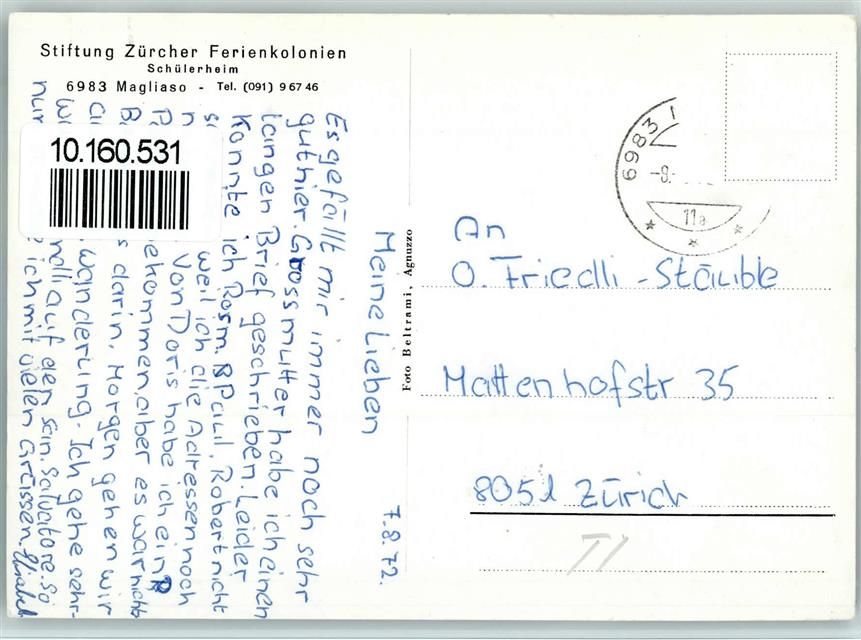 Stiftung Zürcher Ferienkolonien
Schülerheim
6983 Magliaso - Tel. (091) 9 67 46
10.160.531
7.8.72.
Meine Lieben
Es gefällt mir immer noch sehr
gut hier. Grossmutter habe ich einen
langen Brief geschrieben. Leider
konnte ich Rosm. & Paul, Robert nicht
weil ich die Adressen noch
Von Doris habe ich ein P
ekommen, aber es war nichts
s darin. Morgen gehen wir
wanderung. Ich gehe sehr
auf den San. Salvatore. So
ich mit vielen Grüssen.
Foto Beltrami, Agnuzzo
6983
-8.-
11a
An
O. Friedli-Stäuble
Mattenhofstr 35
8051 Zürich